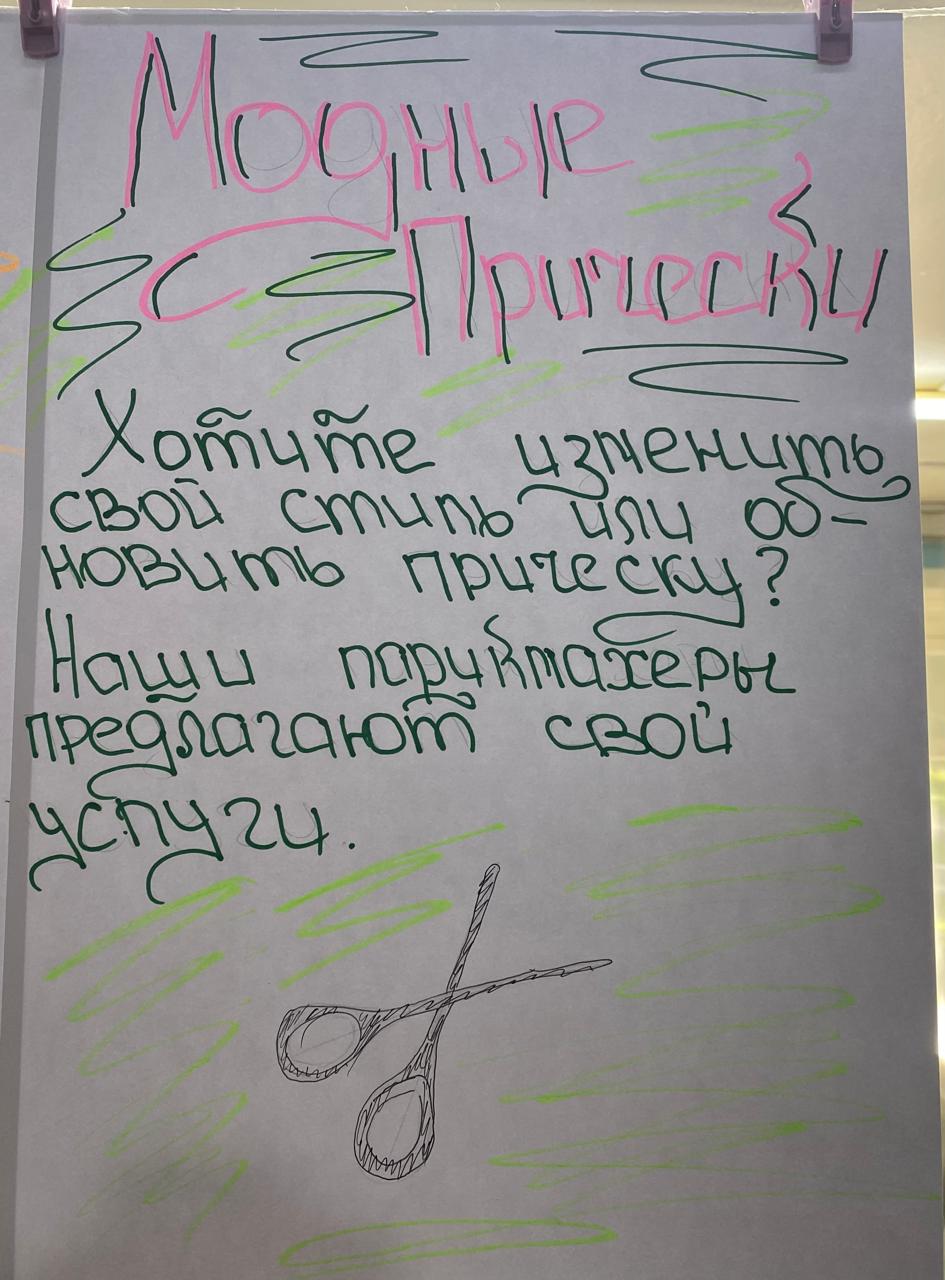 Модные
Прически
Хотите изменить
свой стиль или об-
новить прическу?
Наши парикмахеры
предлагают свой
услуги.